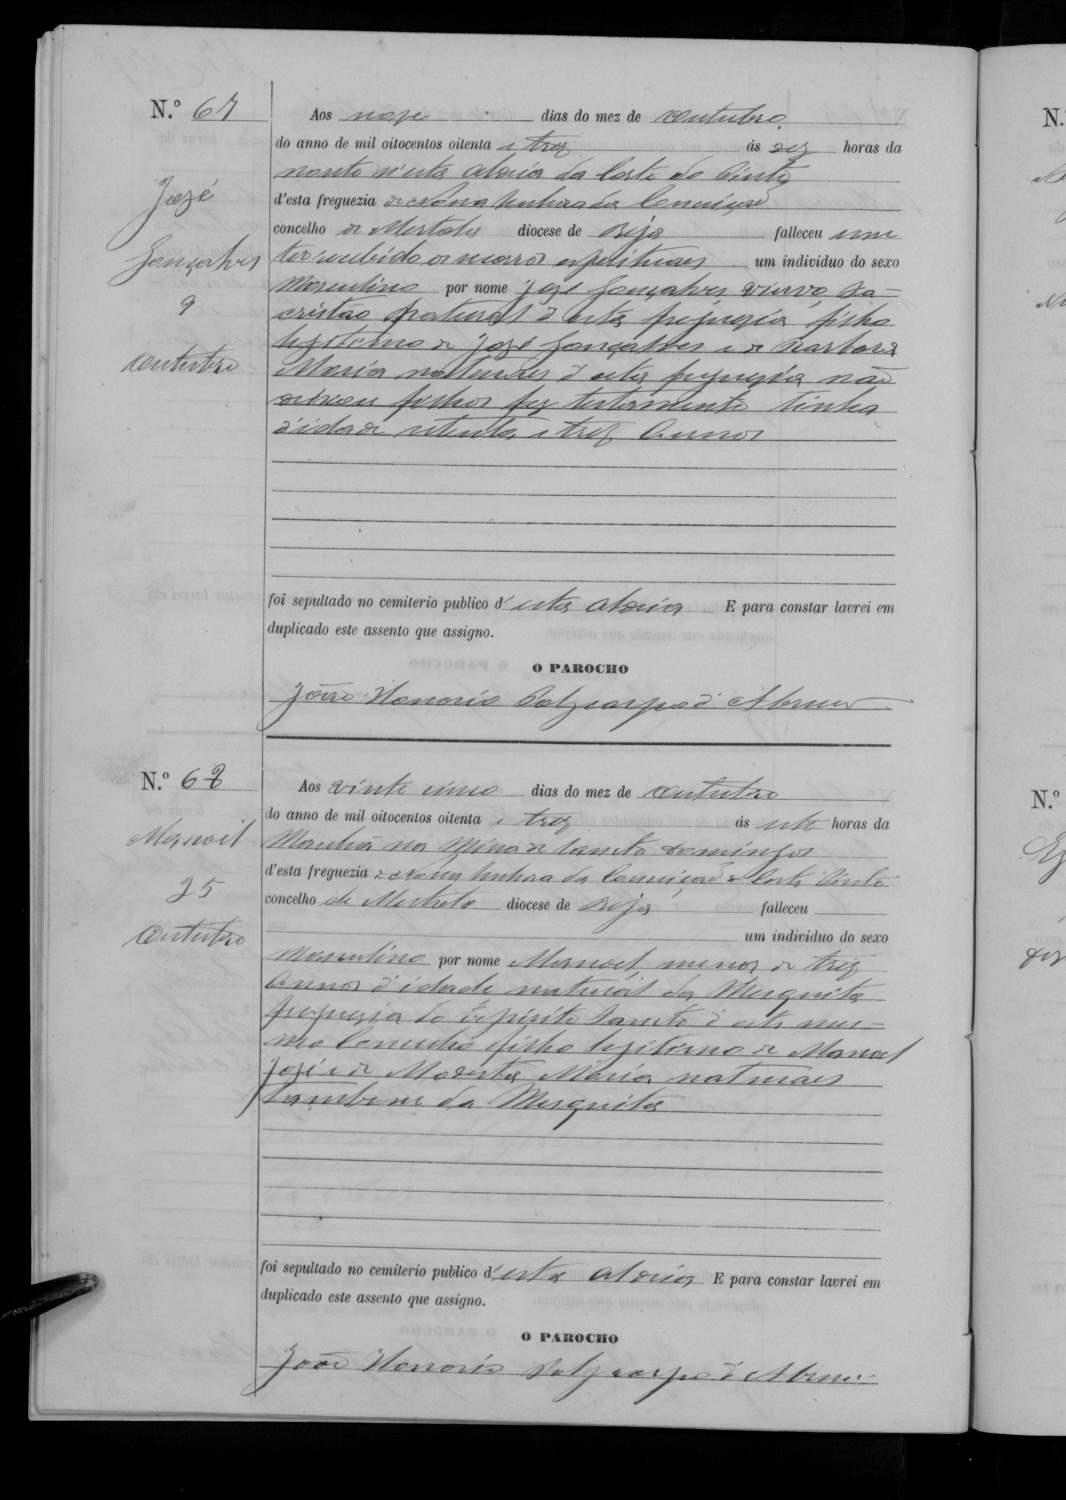 N.º 67
Jozé
Gonçalves
9
Outubro
Aos nove dias do mez de Outubro
do anno de mil oitocentos oitenta e trez ás dez horas da
noute n'esta Aldeia da Corte do Pinto
d'esta freguezia de Nossa Senhora da Conceição
concelho de Mertola diocese de Beja falleceu sem
ter recebido os um individuo do sexo
Masculino por nome Jozé Gonçalves viuvo Sa-
cristão natural d'esta freguezia, filho
legitimo de Jozé Gonçalves e de Barbara
Maria naturaes d'esta freguezia não
deixou filhos fez testamento tinha
d'idade setenta e trez Annos
foi sepultado no cemiterio publico d'esta Aldeia E para constar lavrei em
duplicado este assento que assigno.
O PAROCHO
João Honorio Polycarpo d'Abreu
N.º 68
Manoel
25
Outubro
Aos vinte cinco dias do mez de Outubro
do anno de mil oitocentos oitenta e trez ás sete horas da
Manhã na Mina de Santo Domingos
d'esta freguezia de Nossa Senhora da Conceição de Corte Pinto
concelho de Mertola diocese de Beja falleceu
um individuo do sexo
Masculino por nome Manoel, menor de trez
Annos d'idade natural da Mesquita
freguezia do Espirito Santo d'este mes-
mo Concelho filho legitimo de Manoel
Jozé e de Modesta Maria naturaes
tambem da Mesquita
foi sepultado no cemiterio publico d'esta Aldeia E para constar lavrei em
duplicado este assento que assigno.
O PAROCHO
João Honorio Polycarpo d'Abreu
N.
N.º